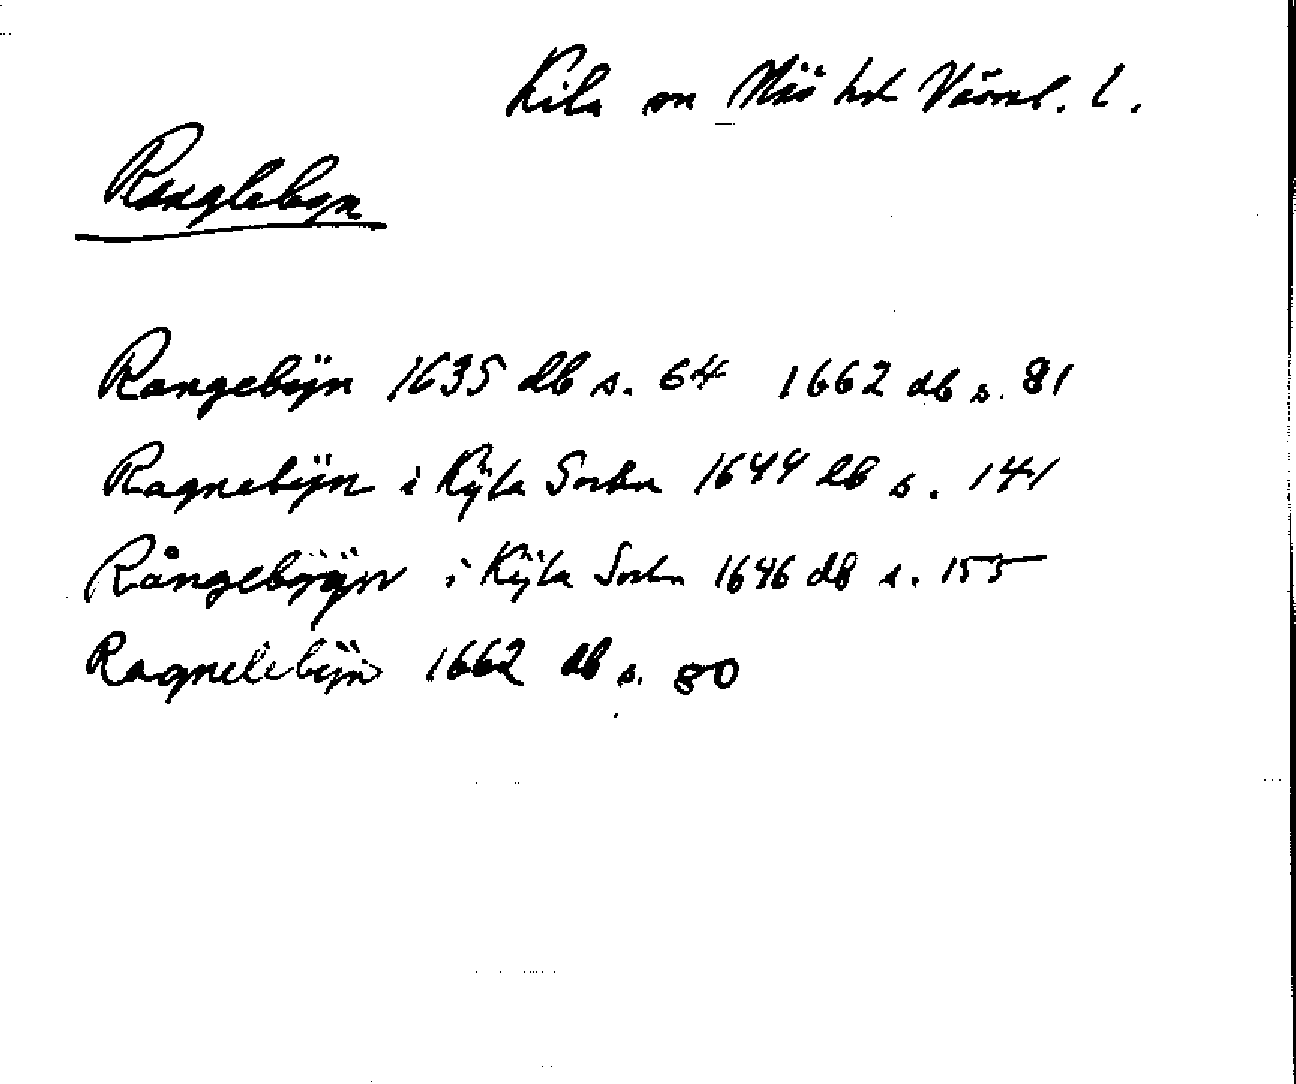 Kila sn Näs hd Värml. l.
Ranglebyn
Rangebÿn 1635 db s. 64 1662 db s. 81
Ragnebÿn i Kÿla Sochn 1644 db s. 141
Rångebÿÿn i Kÿla Sochn 1646 db s. 155
Ragnelebÿn 1662 db s. 80